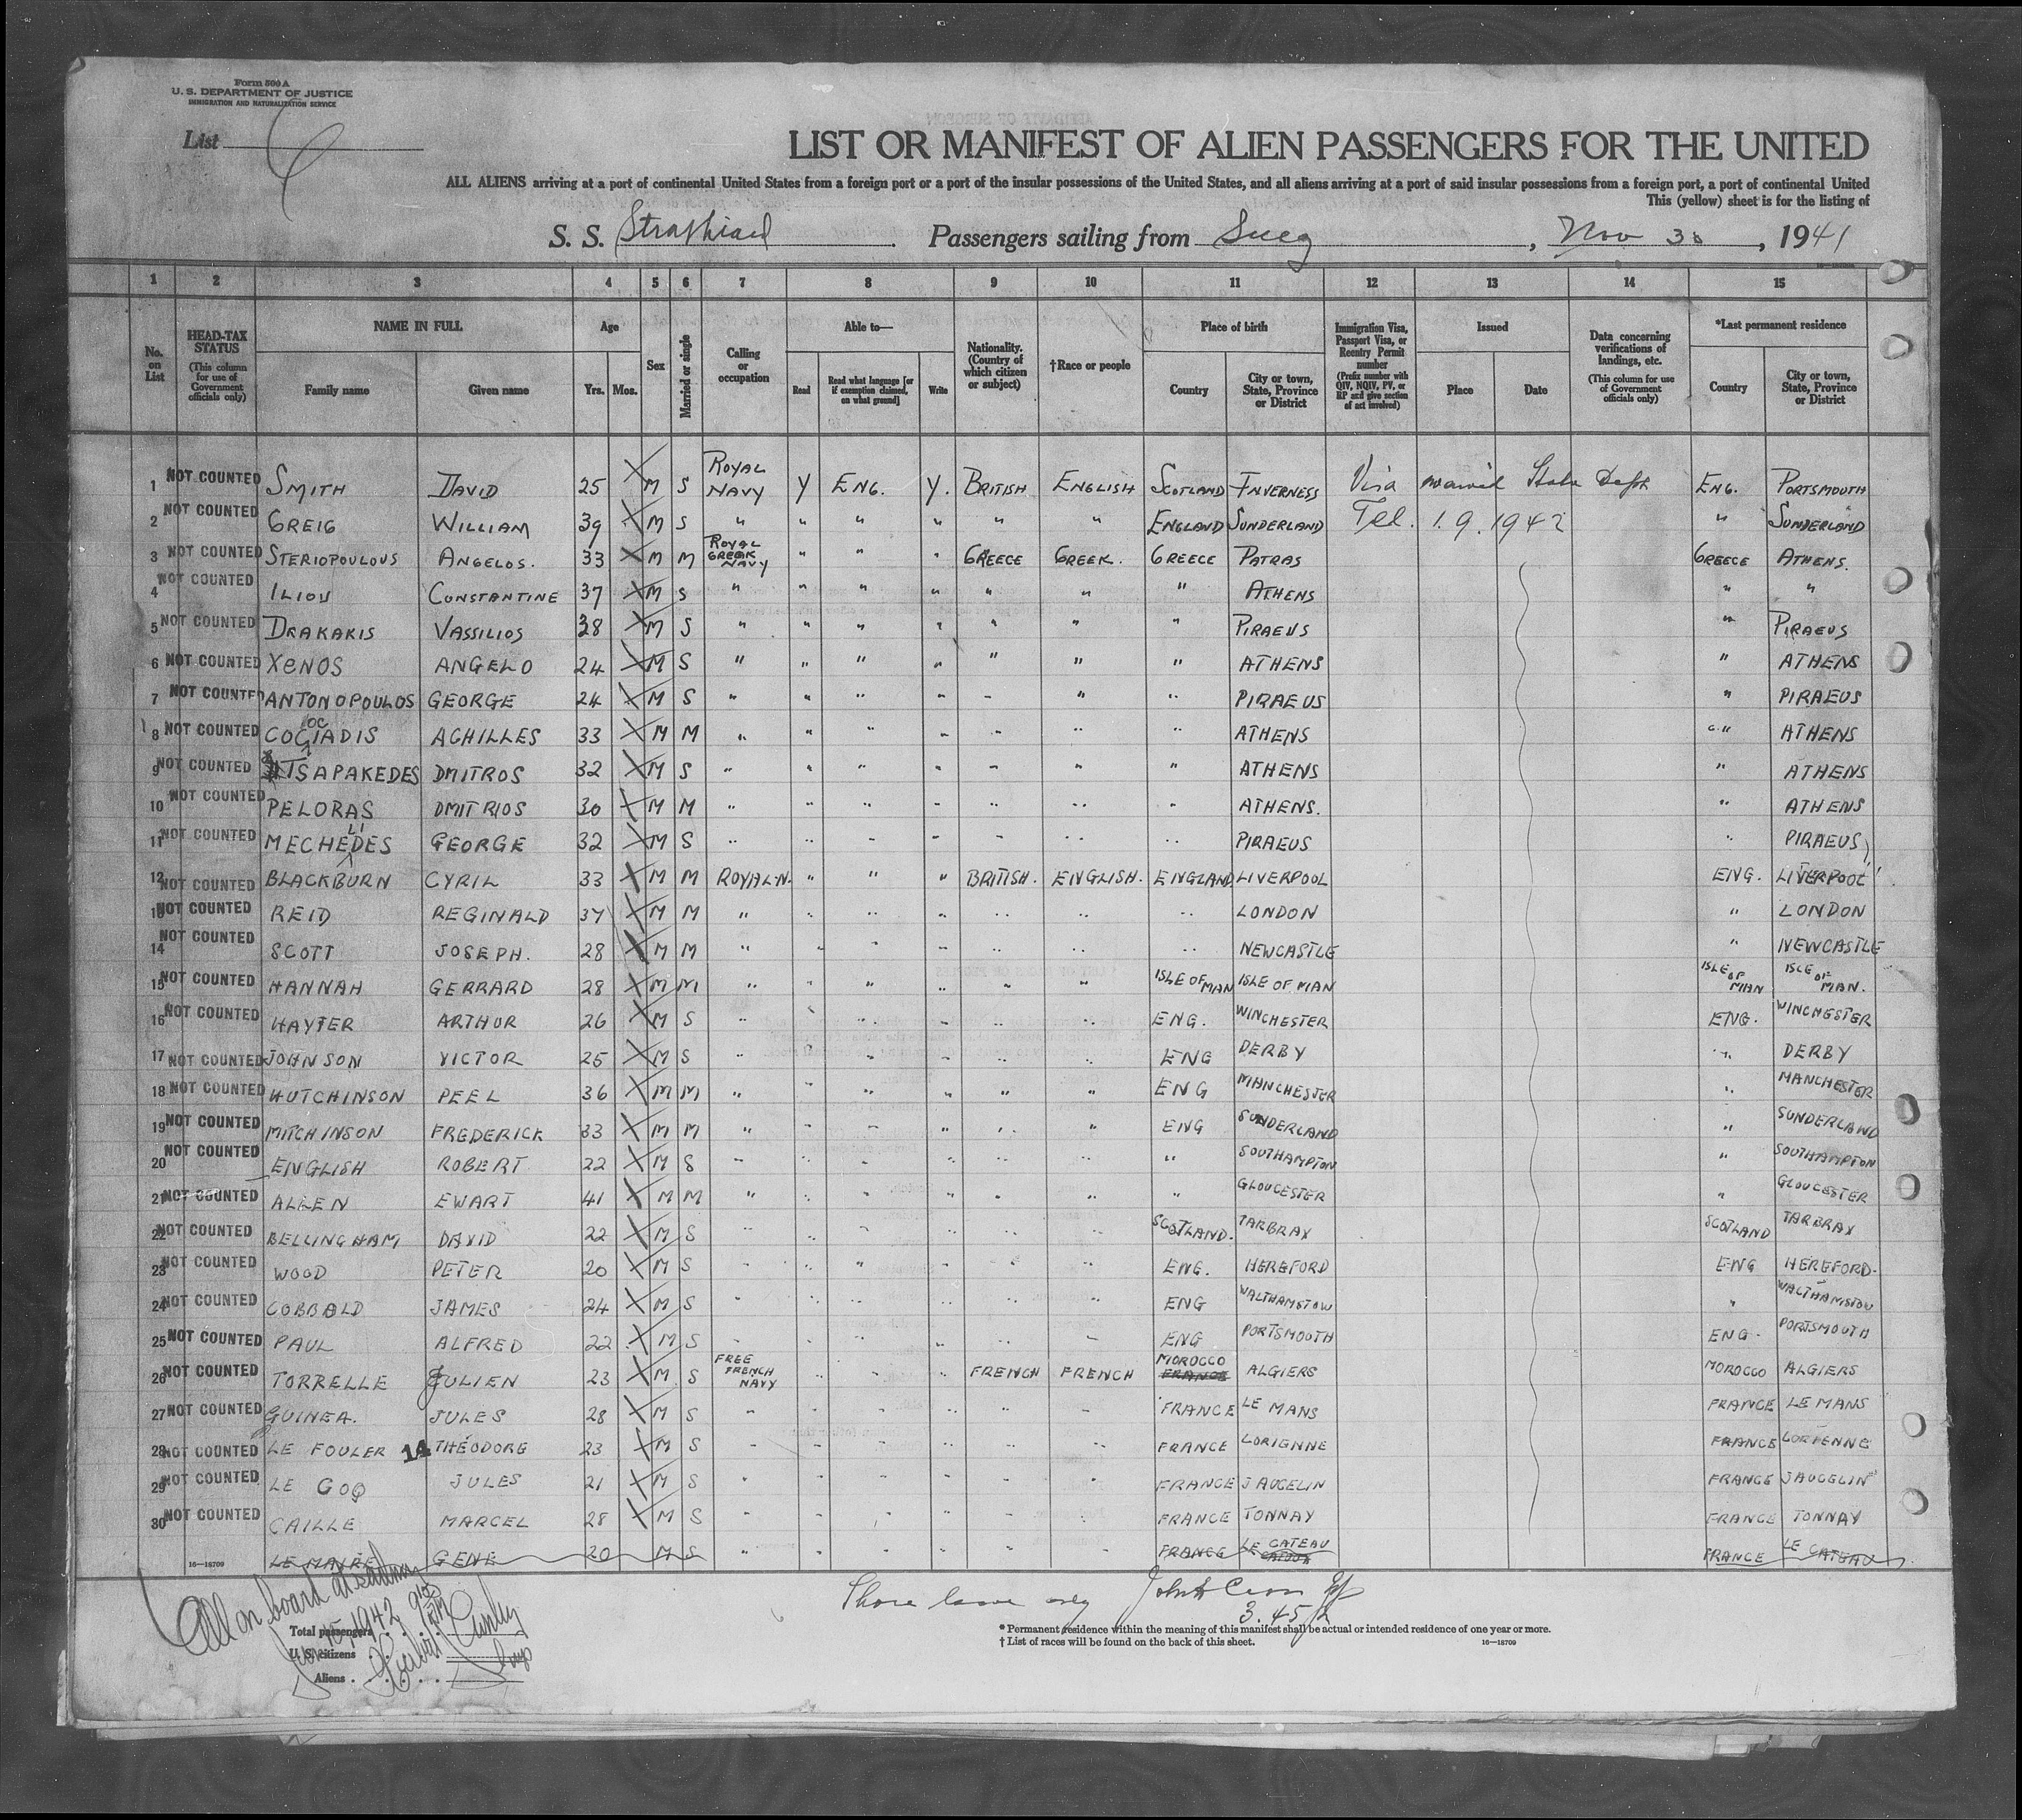 Form 500 A
U. S. DEPARTMENT OF JUSTICE
IMMIGRATION AND NATURALIZATION SERVICE
List
LIST OR MANIFEST OF ALIEN PASSENGERS FOR THE UNITED
ALL ALIENS arriving at a port of continental United States from a foreign port or a port of the insular possessions of the United States, and all aliens arriving at a port of said insular possessions from a foreign port, a port of continental United
This (yellow) sheet is for the listing of
S. S. Passengers sailing from Suez, Nov 30, 1941
1 2 3 4 5 6 7 8 9 10 11 12 13 14 15
No. on List
HEAD-TAX STATUS (This column for use of Government officials only)
NAME IN FULL Family name Given name
Age Yrs. Mos.
Sex
Married or single
Calling or occupation
Able to— Read Read what language [or if exemption claimed, on what ground] Write
Nationality. (Country of which citizen or subject)
†Race or people
Place of birth Country City or town, State, Province or District
Immigration Visa, Passport Visa, or Reentry Permit number (Prefix number with QIV, NQIV, PV, or RP and give section of act involved)
Issued Place Date
Data concerning verifications of landings, etc. (This column for use of Government officials only)
*Last permanent residence Country City or town, State, Province or District
1 NOT COUNTED SMITH DAVID 25 M S ROYAL NAVY Y ENG. Y. BRITISH ENGLISH SCOTLAND INVERNESS Visa waived State Dept ENG. PORTSMOUTH
2 NOT COUNTED GREIG WILLIAM 39 M S " " " " " " ENGLAND SUNDERLAND Tel. 1.9.1942 " SUNDERLAND
3 NOT COUNTED STERIOPOULOUS ANGELOS. 33 M M ROYAL GREEK NAVY " " " GREECE GREEK. GREECE PATRAS GREECE ATHENS.
4 NOT COUNTED ILIOU CONSTANTINE 37 M S " " " " " " " ATHENS " "
5 NOT COUNTED DRAKAKIS VASSILIOS 38 M S " " " " " " " PIRAEUS " PIRAEUS
6 NOT COUNTED XENOS ANGELO 24 M S " " " " " " " ATHENS " ATHENS
7 NOT COUNTED ANTONOPOULOS GEORGE 24 M S " " " " " " " PIRAEUS " PIRAEUS
8 NOT COUNTED COGIADIS OC ACHILLES 33 M M " " " " " " " ATHENS " ATHENS
9 NOT COUNTED TSAPAKEDES DMITROS 32 M S " " " " " " " ATHENS " ATHENS
10 NOT COUNTED PELORAS DMITRIOS 30 M M " " " " " " " ATHENS. " ATHENS
11 NOT COUNTED MECHEDES LI GEORGE 32 M S " " " " " " " PIRAEUS " PIRAEUS
12 NOT COUNTED BLACKBURN CYRIL 33 M M ROYAL-N. " " " BRITISH. ENGLISH. ENGLAND LIVERPOOL ENG. LIVERPOOL
13 NOT COUNTED REID REGINALD 37 M M " " " " " " " LONDON " LONDON
14 NOT COUNTED SCOTT JOSEPH. 28 M M " " " " " " " NEWCASTLE " NEWCASTLE
15 NOT COUNTED HANNAH GERRARD 28 M M " " " " " " ISLE OF MAN ISLE OF MAN ISLE OF MAN ISLE OF MAN.
16 NOT COUNTED HAYTER ARTHUR 26 M S " " " " " " ENG. WINCHESTER ENG. WINCHESTER
17 NOT COUNTED JOHNSON VICTOR 25 M S " " " " " " ENG DERBY " DERBY
18 NOT COUNTED HUTCHINSON PEEL 36 M M " " " " " " ENG MANCHESTER " MANCHESTER
19 NOT COUNTED MITCHINSON FREDERICK 33 M M " " " " " " ENG SUNDERLAND " SUNDERLAND
20 NOT COUNTED ENGLISH ROBERT 22 M S " " " " " " " SOUTHAMPTON " SOUTHAMPTON
21 NOT COUNTED ALLEN EWART 41 M M " " " " " " " GLOUCESTER " GLOUCESTER
22 NOT COUNTED BELLINGHAM DAVID 22 M S " " " " " " SCOTLAND. TARBRAX SCOTLAND TARBRAX
23 NOT COUNTED WOOD PETER 20 M S " " " " " " ENG. HEREFORD ENG HEREFORD.
24 NOT COUNTED COBBALD JAMES 24 M S " " " " " " ENG WALTHAMSTOW " WALTHAMSTOW
25 NOT COUNTED PAUL ALFRED 22 M S " " " " " " ENG PORTSMOUTH ENG. PORTSMOUTH
26 NOT COUNTED TORRELLE JULIEN 23 M S FREE FRENCH NAVY " " " FRENCH FRENCH MOROCCO FRANCE ALGIERS MOROCCO ALGIERS
27 NOT COUNTED GUINEA. JULES 28 M S " " " " " " FRANCE LE MANS FRANCE LE MANS
28 NOT COUNTED LE FOULER 14 THÉODORE 23 M S " " " " " " FRANCE LORIENNE FRANCE LORIENNE
29 NOT COUNTED LE GOQ JULES 21 M S " " " " " " FRANCE JAUGELIN FRANCE JAUGELIN
30 NOT COUNTED CAILLE MARCEL 28 M S " " " " " " FRANCE TONNAY FRANCE TONNAY
16—18709 LE MAYRE GENE 20 M S " " " " " " FRANCE LE CATEAU FRANCE LE CATEAU
All on board at sailing
1942
Shore leave only John
3.45
Total passengers
U. S. citizens
Aliens
* Permanent residence within the meaning of this manifest shall be actual or intended residence of one year or more.
† List of races will be found on the back of this sheet.
16—18709